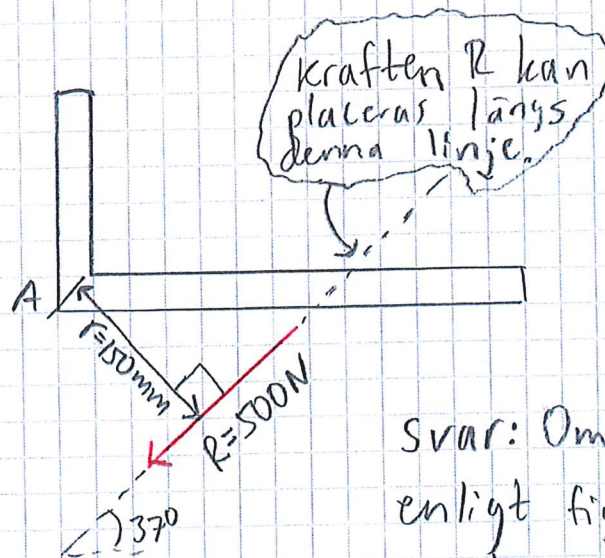 kraften R kan
placeras längs
denna linje.
A
r=150mm
R=500N
37°
svar: Om
enligt fig